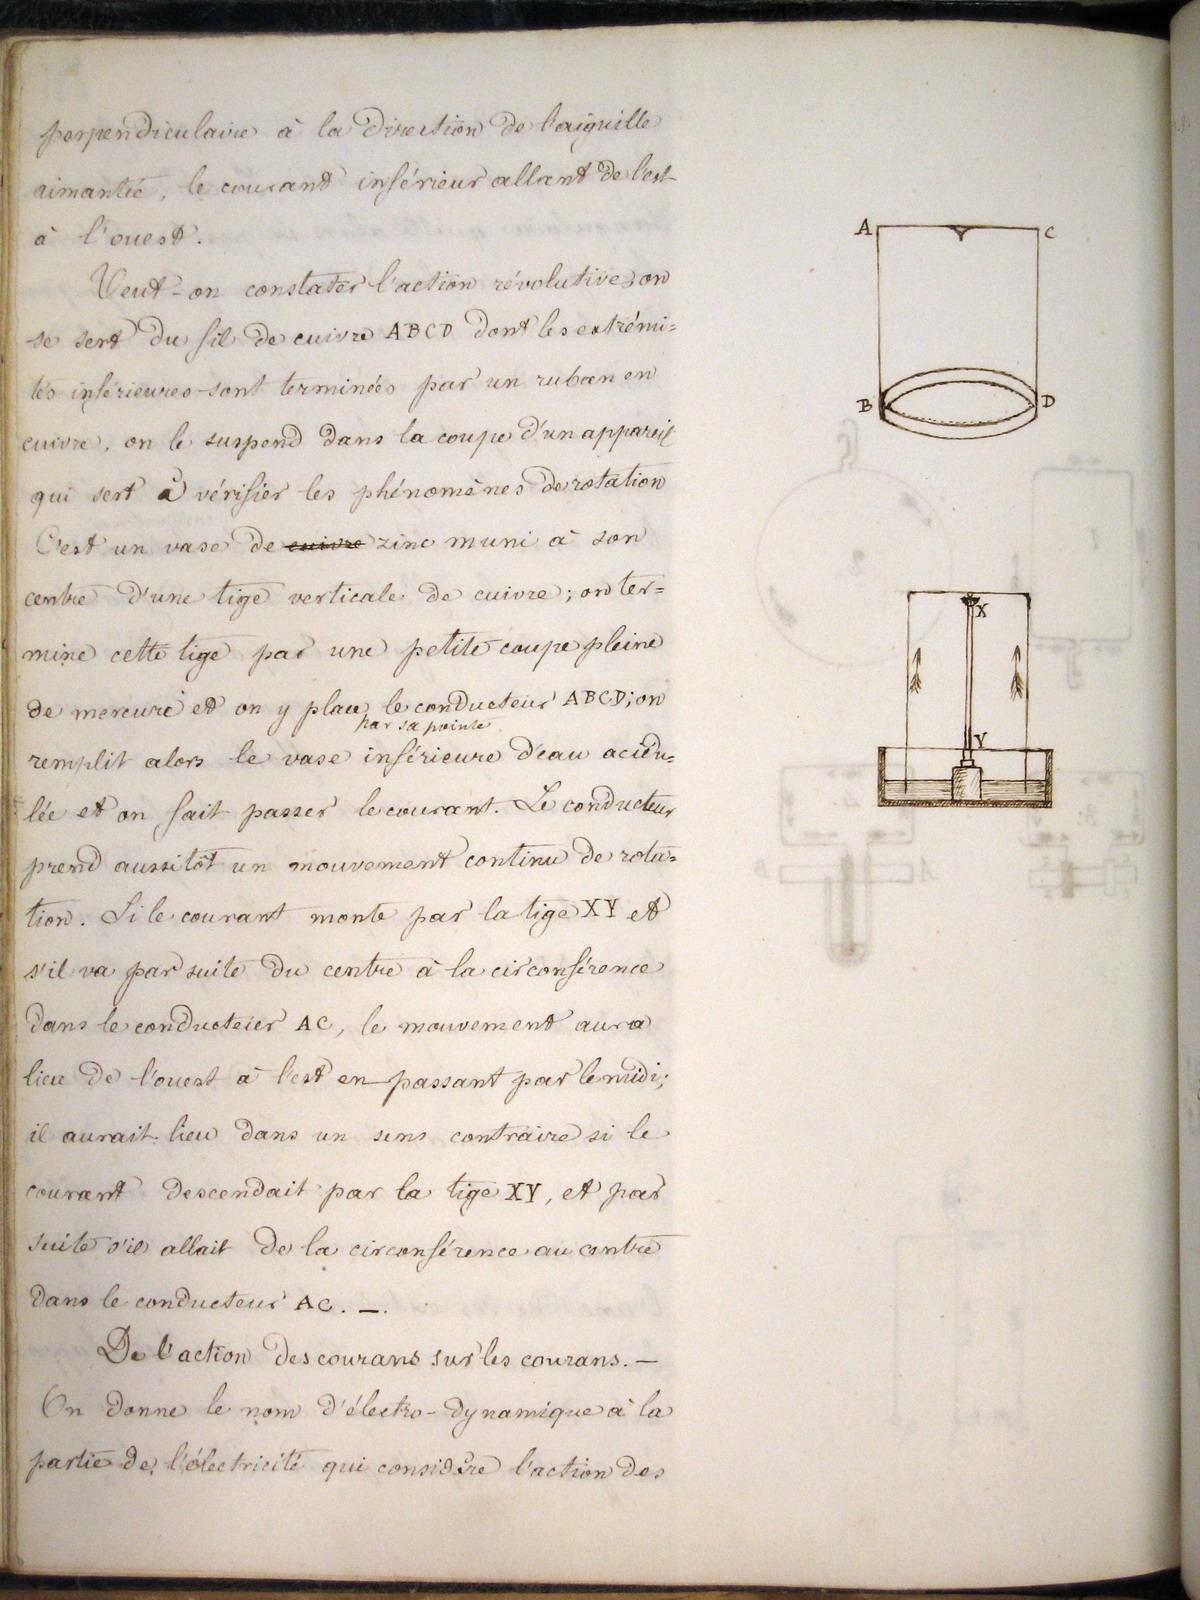 perpendiculaire à la direction de l'aiguille
aimantée, le courant inférieur allant de l'est
à l'ouest.
Veut-on constater l'action révolutive, on
se sert du fil de cuivre ABCD dont les extrémi=
tés inférieures sont terminées par un ruban en
cuivre, on le suspend dans la coupe d'un appareil
qui sert à vérifier les phénomènes de rotation
C'est un vase de cuivre zinc muni à son
centre d'une tige verticale de cuivre; on ter=
mine cette tige par une petite coupe pleine
de mercure et on y place le conducteur ABCD; on
par sa pointe
remplit alors le vase inférieure d'eau acidu=
lée et on fait passer le courant. Le conducteur
prend aussitôt un mouvement continu de rota=
tion. Si le courant monte par la tige XY et
s'il va par suite du centre à la circonférence
dans le conducteur AC, le mouvement aura
lieu de l'ouest à l'est en passant par le midi;
il aurait lieu dans un sens contraire si le
courant descendait par la tige XY, et par
suite s'il allait de la circonférence au centre
dans le conducteur AC. —.
De l'action des courans sur les courans. —
On donne le nom d'électro-dynamique à la
partie de l'électricité qui considère l'action des
A C
B D
X
Y